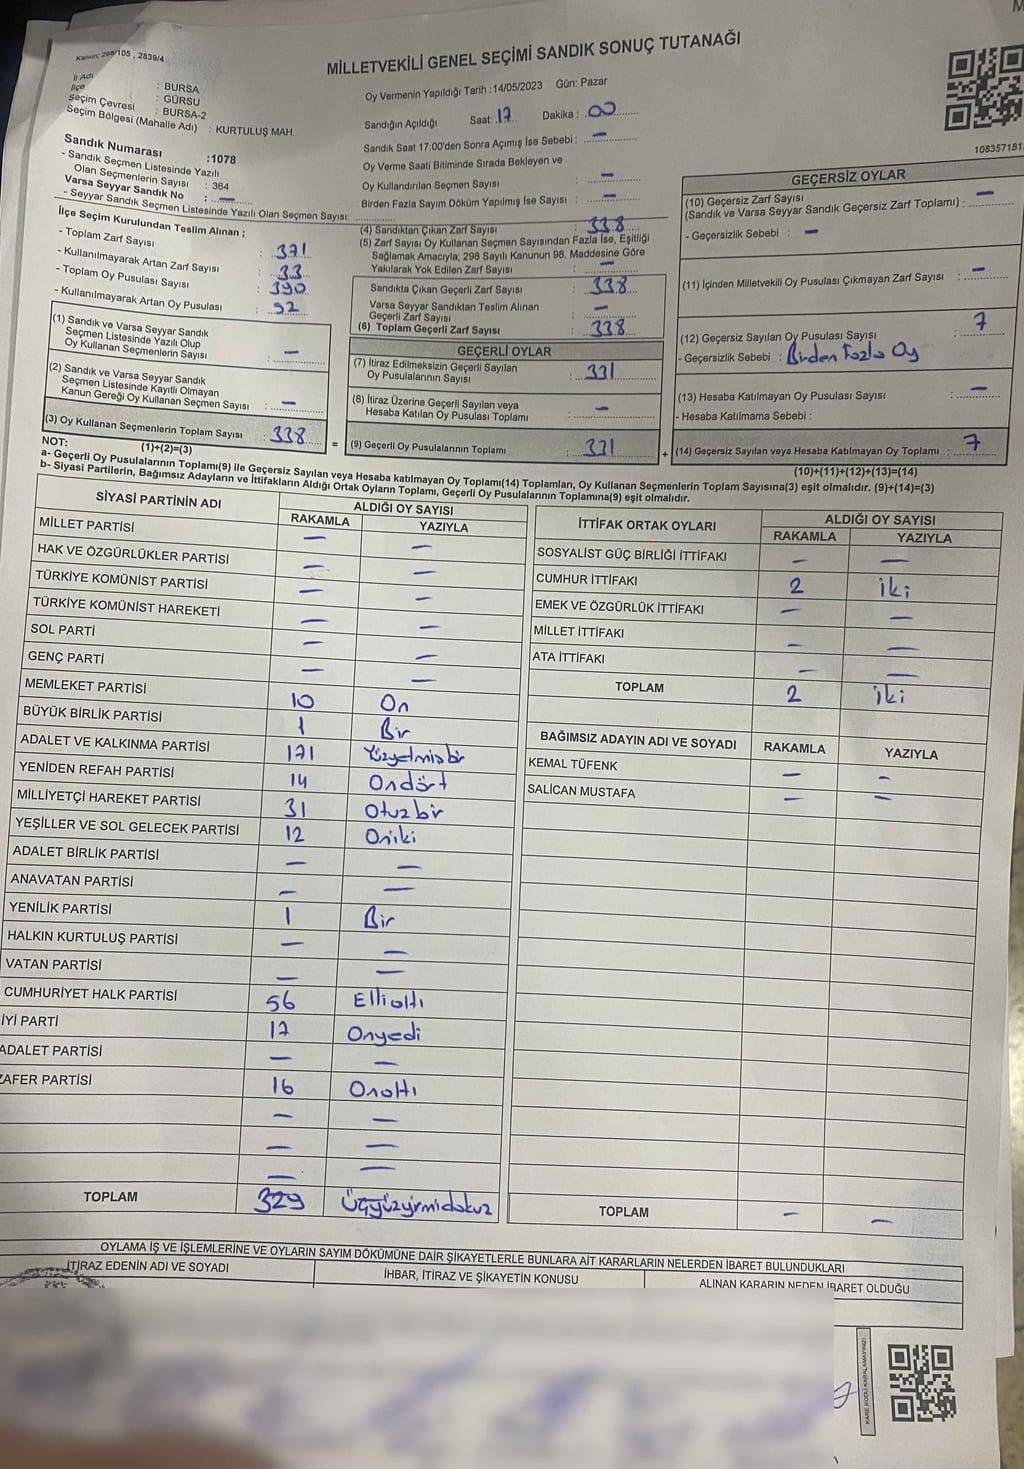 Kanun: 298/105 , 2839/4
MİLLETVEKİLİ GENEL SEÇİMİ SANDIK SONUÇ TUTANAĞI
İl Adı : BURSA
İlçe : GÜRSU
Seçim Çevresi : BURSA-2
Seçim Bölgesi (Mahalle Adı) : KURTULUŞ MAH.
Sandık Numarası :1078
- Sandık Seçmen Listesinde Yazılı
Olan Seçmenlerin Sayısı : 364
Varsa Seyyar Sandık No : —
- Seyyar Sandık Seçmen Listesinde Yazılı Olan Seçmen Sayısı:
İlçe Seçim Kurulundan Teslim Alınan ;
- Toplam Zarf Sayısı : 371
- Kullanılmayarak Artan Zarf Sayısı : 33
- Toplam Oy Pusulası Sayısı : 390
- Kullanılmayarak Artan Oy Pusulası : 52
(1) Sandık ve Varsa Seyyar Sandık
Seçmen Listesinde Yazılı Olup
Oy Kullanan Seçmenlerin Sayısı : —
(2) Sandık ve Varsa Seyyar Sandık
Seçmen Listesinde Kayıtlı Olmayan
Kanun Gereği Oy Kullanan Seçmen Sayısı : —
(3) Oy Kullanan Seçmenlerin Toplam Sayısı : 338
(1)+(2)=(3)
Oy Vermenin Yapıldığı Tarih :14/05/2023 Gün: Pazar
Sandığın Açıldığı Saat: 17 Dakika : 00
Sandık Saat 17:00'den Sonra Açımış İse Sebebi : —
Oy Verme Saati Bitiminde Sırada Bekleyen ve
Oy Kullandırılan Seçmen Sayısı : —
Birden Fazla Sayım Döküm Yapılmış İse Sayısı : —
(4) Sandıktan Çıkan Zarf Sayısı : 338
(5) Zarf Sayısı Oy Kullanan Seçmen Sayısından Fazla İse, Eşitliği
Sağlamak Amacıyla; 298 Sayılı Kanunun 98. Maddesine Göre
Yakılarak Yok Edilen Zarf Sayısı : —
Sandıkta Çıkan Geçerli Zarf Sayısı : 338
Varsa Seyyar Sandıktan Teslim Alınan
Geçerli Zarf Sayısı : —
(6) Toplam Geçerli Zarf Sayısı : 338
GEÇERLİ OYLAR
(7) İtiraz Edilmeksizin Geçerli Sayılan
Oy Pusulalarının Sayısı : 331
(8) İtiraz Üzerine Geçerli Sayılan veya
Hesaba Katılan Oy Pusulası Toplamı : —
= (9) Geçerli Oy Pusulalarının Toplamı : 331
108357181
GEÇERSİZ OYLAR
(10) Geçersiz Zarf Sayısı
(Sandık ve Varsa Seyyar Sandık Geçersiz Zarf Toplamı) : —
- Geçersizlik Sebebi : —
(11) İçinden Milletvekili Oy Pusulası Çıkmayan Zarf Sayısı : —
(12) Geçersiz Sayılan Oy Pusulası Sayısı : 7
- Geçersizlik Sebebi : Birden Fazla Oy
(13) Hesaba Katılmayan Oy Pusulası Sayısı : —
- Hesaba Katılmama Sebebi :
+ (14) Geçersiz Sayılan veya Hesaba Katılmayan Oy Toplamı : 7
(10)+(11)+(12)+(13)=(14)
NOT:
a- Geçerli Oy Pusulalarının Toplamı(9) ile Geçersiz Sayılan veya Hesaba katılmayan Oy Toplamı(14) Toplamları, Oy Kullanan Seçmenlerin Toplam Sayısına(3) eşit olmalıdır. (9)+(14)=(3)
b- Siyasi Partilerin, Bağımsız Adayların ve İttifakların Aldığı Ortak Oyların Toplamı, Geçerli Oy Pusulalarının Toplamına(9) eşit olmalıdır.
SİYASİ PARTİNİN ADI ALDIĞI OY SAYISI
RAKAMLA YAZIYLA
MİLLET PARTİSİ — —
HAK VE ÖZGÜRLÜKLER PARTİSİ — —
TÜRKİYE KOMÜNİST PARTİSİ — —
TÜRKİYE KOMÜNİST HAREKETİ — —
SOL PARTİ — —
GENÇ PARTİ — —
MEMLEKET PARTİSİ 10 On
BÜYÜK BİRLİK PARTİSİ 1 Bir
ADALET VE KALKINMA PARTİSİ 171 Yüzyetmişbir
YENİDEN REFAH PARTİSİ 14 Ondört
MİLLİYETÇİ HAREKET PARTİSİ 31 Otuzbir
YEŞİLLER VE SOL GELECEK PARTİSİ 12 Oniki
ADALET BİRLİK PARTİSİ — —
ANAVATAN PARTİSİ — —
YENİLİK PARTİSİ 1 Bir
HALKIN KURTULUŞ PARTİSİ — —
VATAN PARTİSİ — —
CUMHURİYET HALK PARTİSİ 56 Ellialtı
İYİ PARTİ 17 Onyedi
ADALET PARTİSİ — —
ZAFER PARTİSİ 16 Onaltı
— —
— —
— —
TOPLAM 329 Üçyüzyirmidokuz
İTTİFAK ORTAK OYLARI ALDIĞI OY SAYISI
RAKAMLA YAZIYLA
SOSYALİST GÜÇ BİRLİĞİ İTTİFAKI — —
CUMHUR İTTİFAKI 2 iki
EMEK VE ÖZGÜRLÜK İTTİFAKI — —
MİLLET İTTİFAKI — —
ATA İTTİFAKI — —
TOPLAM 2 iki
BAĞIMSIZ ADAYIN ADI VE SOYADI RAKAMLA YAZIYLA
KEMAL TÜFENK — —
SALİCAN MUSTAFA — —
TOPLAM — —
OYLAMA İŞ VE İŞLEMLERİNE VE OYLARIN SAYIM DÖKÜMÜNE DAİR ŞİKAYETLERLE BUNLARA AİT KARARLARIN NELERDEN İBARET BULUNDUKLARI
İTİRAZ EDENİN ADI VE SOYADI İHBAR, İTİRAZ VE ŞİKAYETİN KONUSU ALINAN KARARIN NEDEN İBARET OLDUĞU
KARE KODU KARALAMAYINIZ!